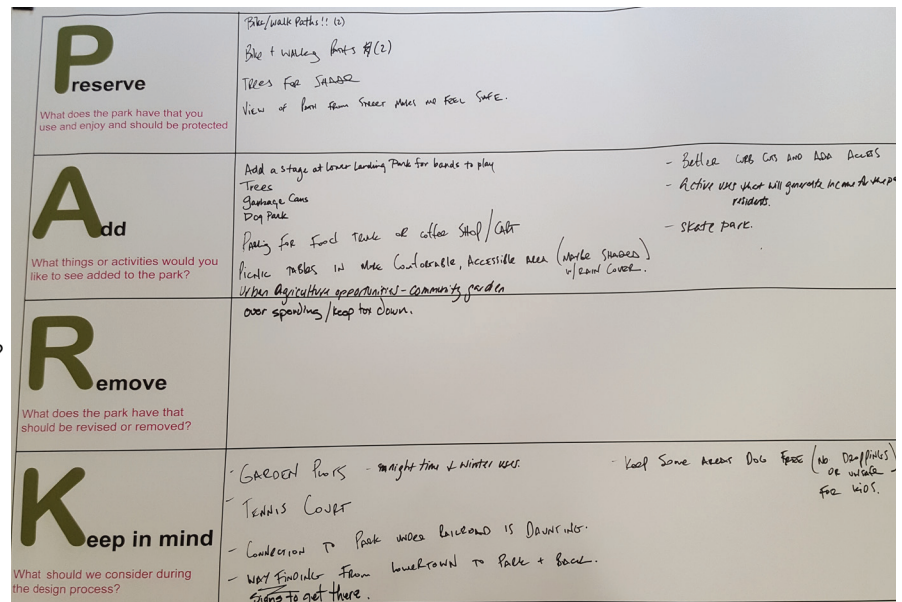 Preserve
What does the park have that you
use and enjoy and should be protected
Bike/walk Paths!! (2)
Bike + walking Paths (2)
Trees for Shade
View of Park from Street makes me feel safe.
Add
What things or activities would you
like to see added to the park?
Add a stage at Lower Landing Park for bands to play
Trees
Garbage Cans
Dog Park
Parking for Food Truck or coffee shop/cart
Picnic tables in more comfortable, accessible area (maybe shaded)
w/ rain cover.
Urban Agriculture opportunities - community garden
- Better curb cuts and ADA Access
- Active uses that will generate income for the
residents.
- skate park.
Remove
What does the park have that
should be revised or removed?
over spending/keep tax down.
Keep in mind
What should we consider during
the design process?
- Garden Plots - night time & winter uses.
- Tennis Court
- Connection to Park under Railroad is daunting.
- Way finding from Lowertown to Park + Back.
Signs to get there.
- Keep some areas Dog Free (No Droppings)
or unsafe -
for kids.